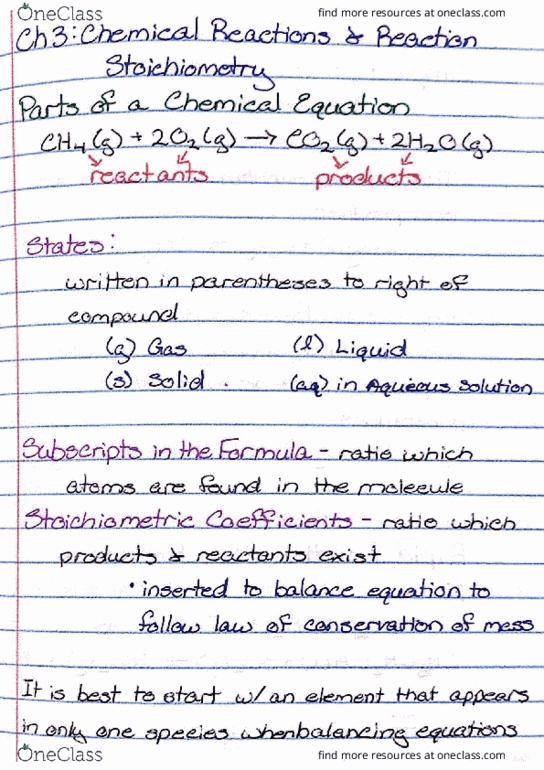 OneClass find more resources at oneclass.com
Ch3: Chemical Reactions & Reaction
Stoichiometry
Parts of a Chemical Equation
CH₄(g) + 2O₂(g) → CO₂(g) + 2H₂O(g)
reactants products
States:
written in parentheses to right of
compound
(g) Gas (l) Liquid
(s) Solid . (aq) in Aqueous Solution
Subscripts in the Formula - ratio which
atoms are found in the molecule
Stoichiometric Coefficients - ratio which
products & reactants exist
• inserted to balance equation to
follow law of conservation of mess
It is best to start w/ an element that appears
in only one species when balancing equations
OneClass find more resources at oneclass.com